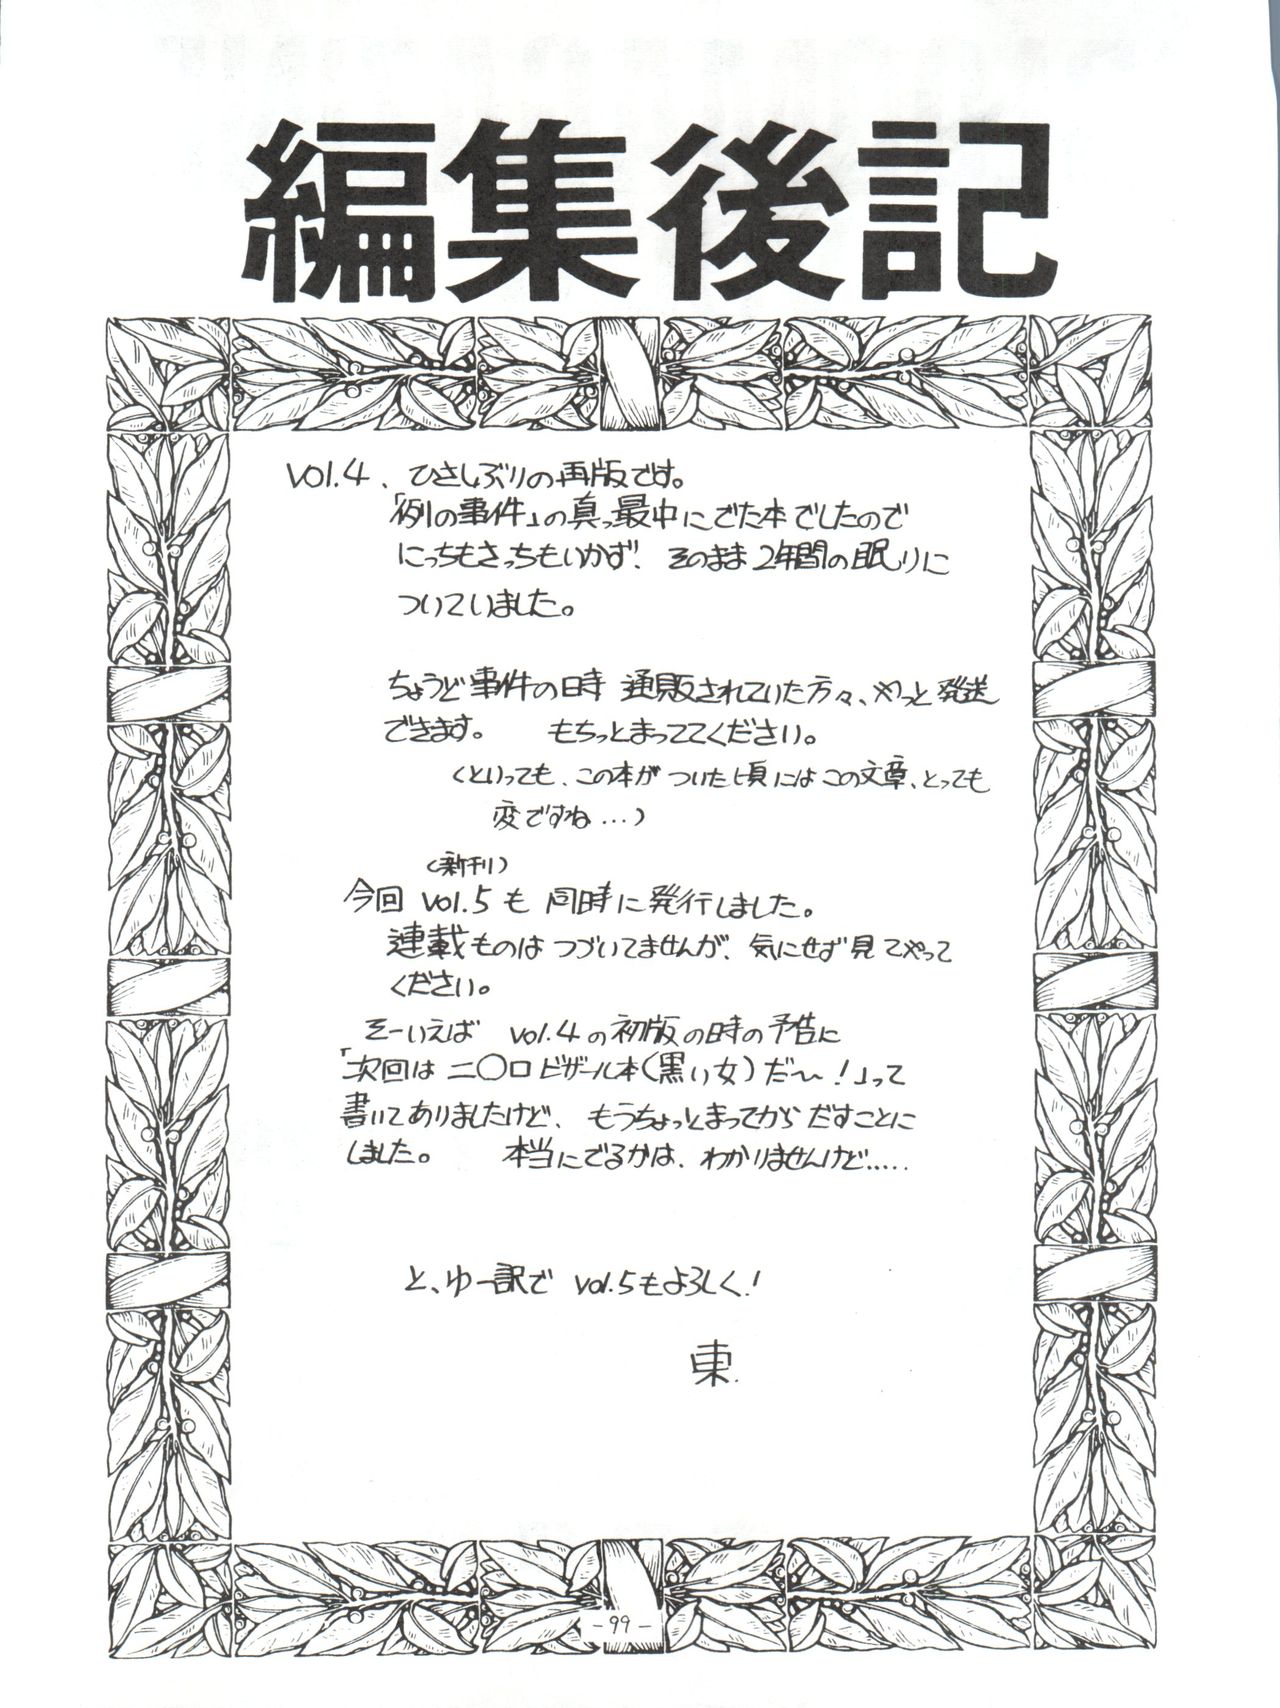 編集後記
vol.4、ひさしぶりの再版です。
「例の事件」の真っ最中にでた本でしたので
にっちもさっちもいかず、そのまま2年間の眠りに
ついていました。
ちょうど事件の時 通販されていた方々、やっと発送
できます。 もちっとまっててください。
(といっても、この本がついた頃にはこの文章、とっても
変ですね…)
(新刊)
今回 vol.5も 同時に発行しました。
連載ものはつづいてませんが、気にせず見てやって
ください。
そーいえば vol.4の初版の時の予告に
「次回は二〇口ビザール本(黒い女)だ〜!」って
書いてありましたけど、もうちょっとまってからだすことに
しました。 本当にでるかは、わかりませんけど.....
と、ゆー訳で vol.5もよろしく!
東.
-99-